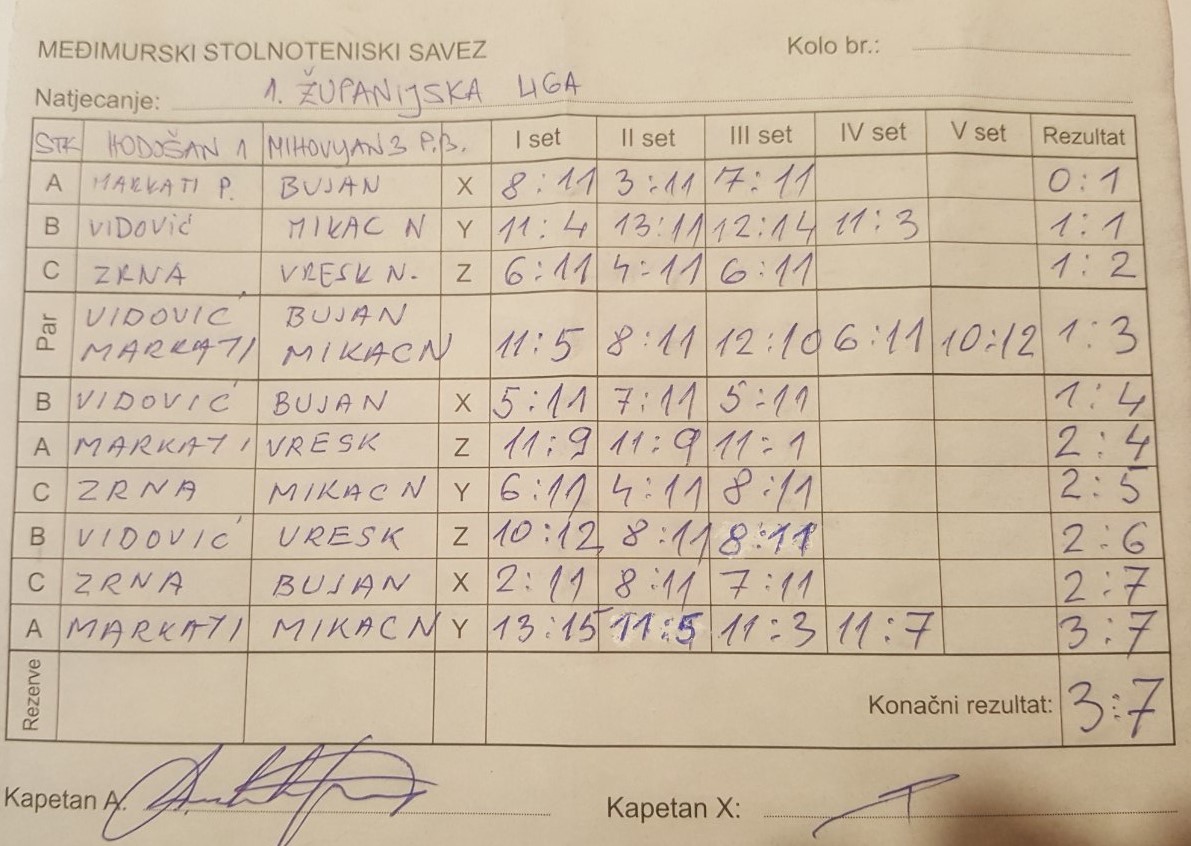 MEĐIMURSKI STOLNOTENISKI SAVEZ Kolo br.:
Natjecanje: 1. ŽUPANIJSKA LIGA
STK HODOŠAN 1 MIHOVLJAN 3 P.B. I set II set III set IV set V set Rezultat
A MARKATI P. BUJAN X 8:11 3:11 7:11 0:1
B VIDOVIĆ MIKAC N Y 11:4 13:11 12:14 11:3 1:1
C ZRNA VRESK N. Z 6:11 4:11 6:11 1:2
Par VIDOVIĆ BUJAN
MARKATI MIKAC N 11:5 8:11 12:10 6:11 10:12 1:3
B VIDOVIĆ BUJAN X 5:11 7:11 5:11 1:4
A MARKATI VRESK Z 11:9 11:9 11:1 2:4
C ZRNA MIKAC N Y 6:11 4:11 8:11 2:5
B VIDOVIĆ VRESK Z 10:12 8:11 8:11 2:6
C ZRNA BUJAN X 2:11 8:11 7:11 2:7
A MARKATI MIKAC N Y 13:15 11:5 11:3 11:7 3:7
Rezerve Konačni rezultat: 3:7
Kapetan A: Kapetan X: